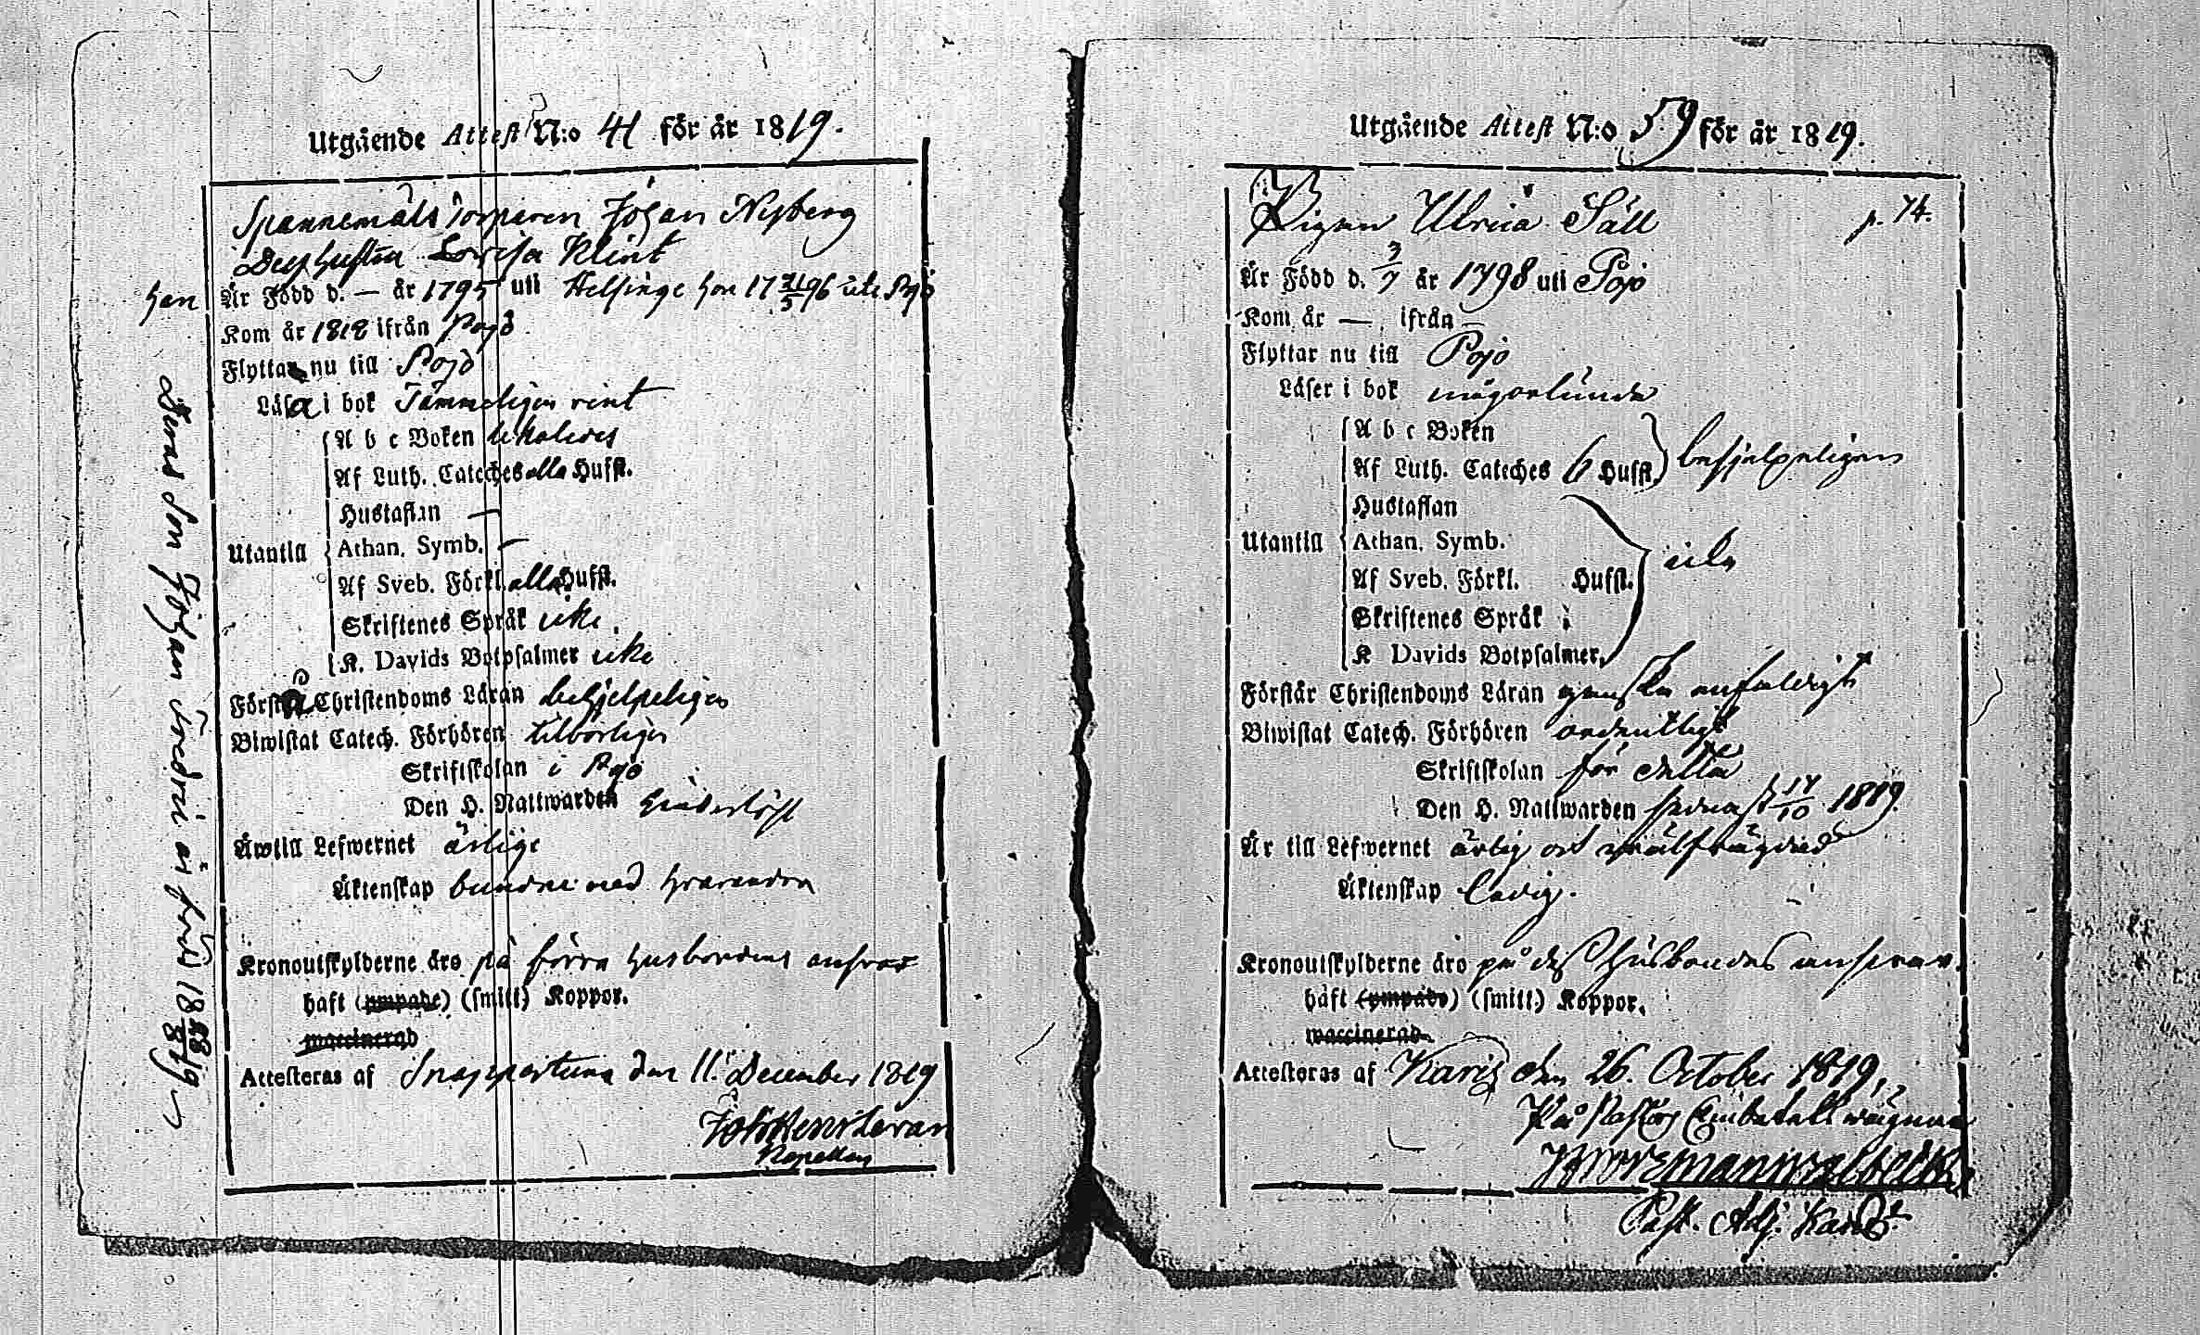 Utgående Attest N:o 41 för år 1819.
Spannemåls Torparen Johan Nyberg
Dess hustru Lovisa Klint
han Är Född d. — år 1795 uti Helsinge hon 17 21/5 96 uti Pojo
Kom år 1818 ifrån Pojo
Flyttar nu till Pojo
Läsa i bok Tämmeligen rent
A b c Boken likaledes
Af Luth. Cateches alla Hufst.
Hustaflan —
Utantill
Athan. Symb. —
Af Sveb. Förkl. alla Hufst.
Skriftenes Språk icke
K. Davids Botpsalmer icke
Förstå Christendoms Läran behjelpeligen
Biwistat Catech. Förhören tilbörligen
Skriftskolan i Pojo
Den H. Nattwarden hinderlöst
Äro till Lefwernet ärlige
Äktenskap bundne med hvarandra
Kronoutskylderne äro på förra husbondens answar
haft (ympade) (smitt.) Koppor.
waccinerad
Attesteras af Snappertuna den 11. December 1819
Kapellan
Deras Son Johan Fredric är född 18 28/8 19
Utgående Attest N:o 59 för år 1819.
Pigan Ulrica Säll p. 74.
Är Född d. 3/7 år 1798 uti Pojo
Kom år — ifrån —
Flyttar nu till Pojo
Läser i bok någorlunda
A b c Boken
Af Luth. Cateches 6 Hufst. behjelpeligen
Hustaflan
Utantill
Athan. Symb.
Af Sveb. Förkl. Hufst.
Skriftenes Språk
K Davids Botpsalmer.
Förstår Christendoms Läran ganska enfaldigt
Biwistat Catech. Förhören ordentligt
Skriftskolan för detta
Den H. Nattwarden sednast 17/10 1819.
Är till Lefwernet ärlig och wälfrägdad
Äktenskap ledig.
Kronoutskylderne äro på dess Husbondes answar.
haft (ympade) (smitt.) Koppor.
waccinerad
Attesteras af Karis den 26. October 1819.
På Pastors Embetets wägnar
Past. Adj. Karis